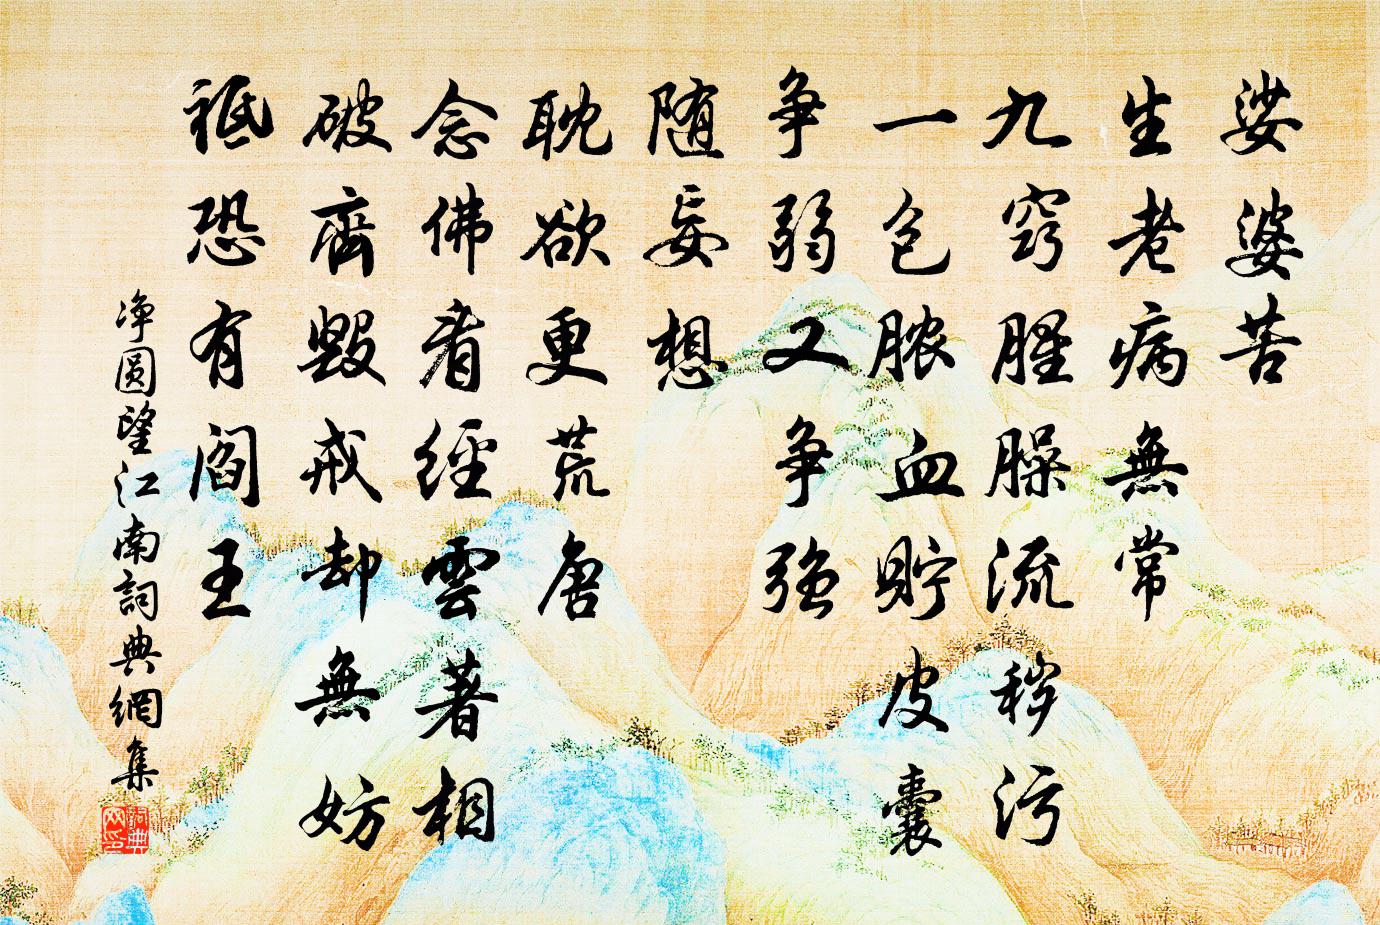 娑婆苦
生老病無常
九窍腥臊流穢污
一包脓血贮皮囊
争弱又争强
随妄想
耽欲更荒唐
念佛看經雲著相
破齋毀戒却無妨
祗恐有阎王
净圓望江南詞典網集